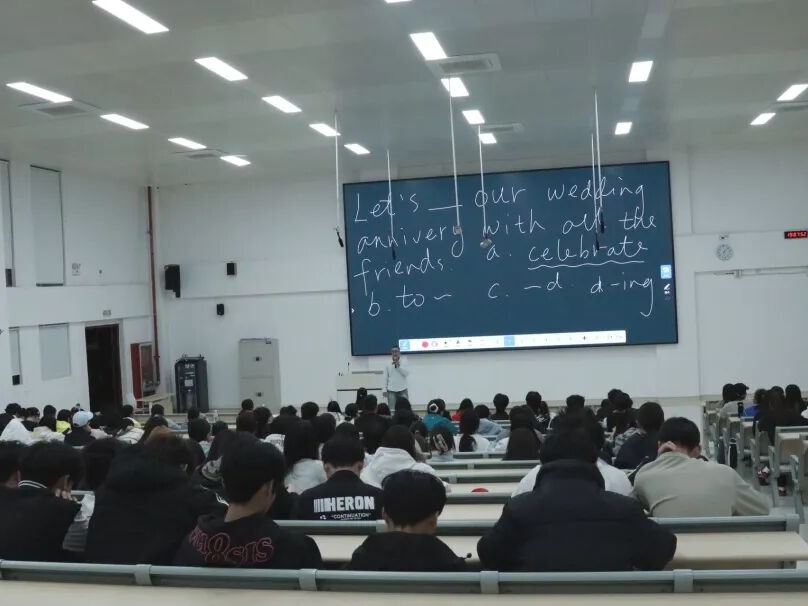 Let's __ our wedding
annivery with all the
friends. a. celebrate
b. to ~ c. ~d. d-ing
HERON
"CONTINUATION"